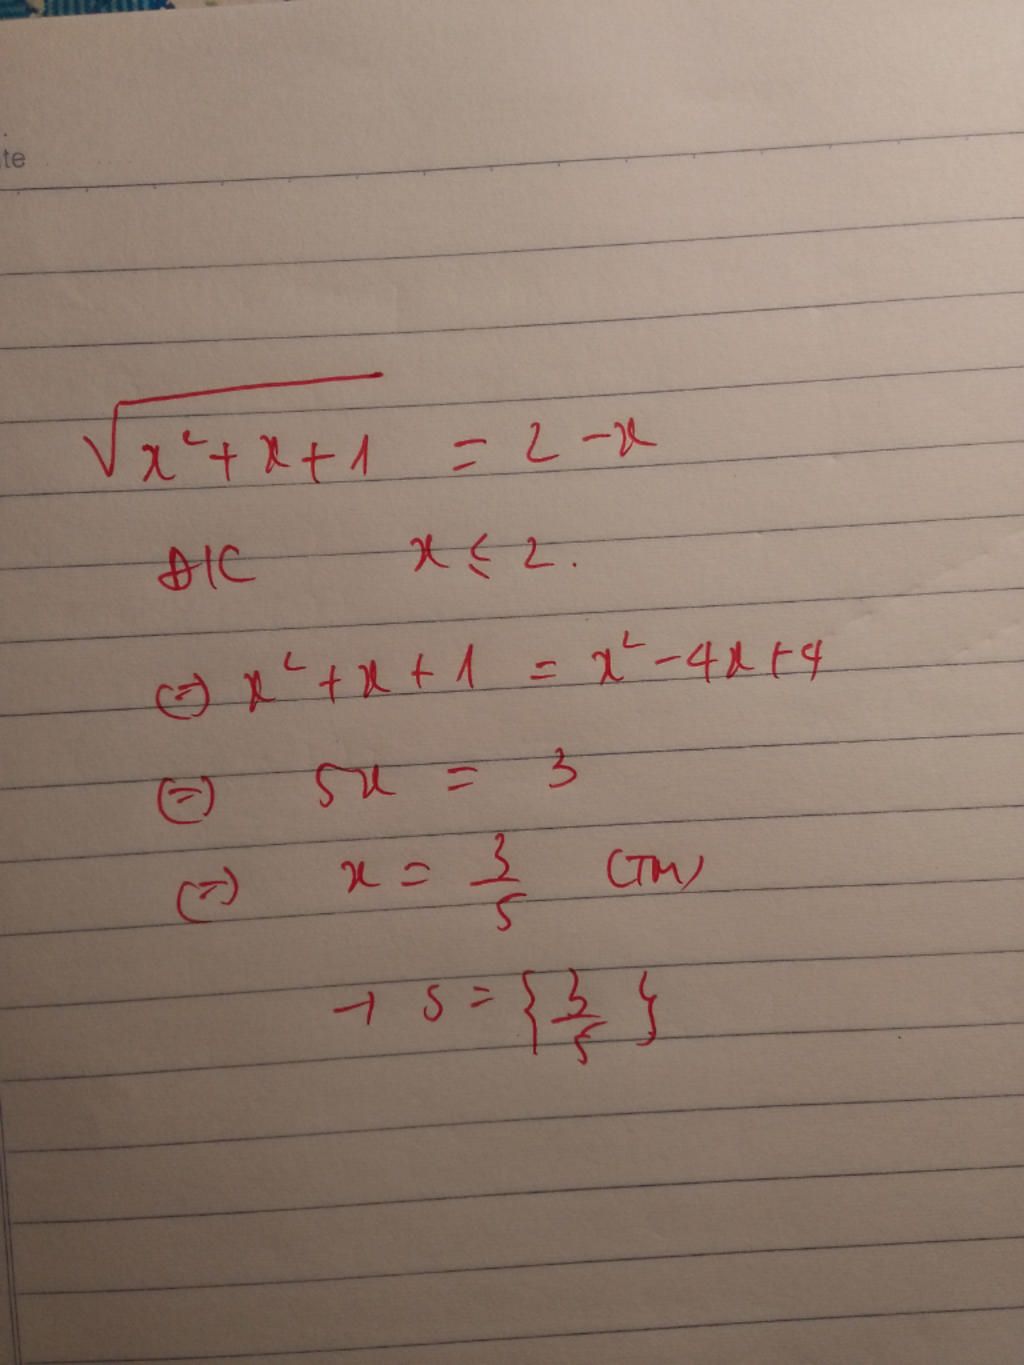 te
√(x²+x+1) = 2-x
ĐK x ≤ 2.
(=) x²+x+1 = x²-4x+4
(=) 5x = 3
(=) x = 3/5 (TM)
→ S = {3/5}